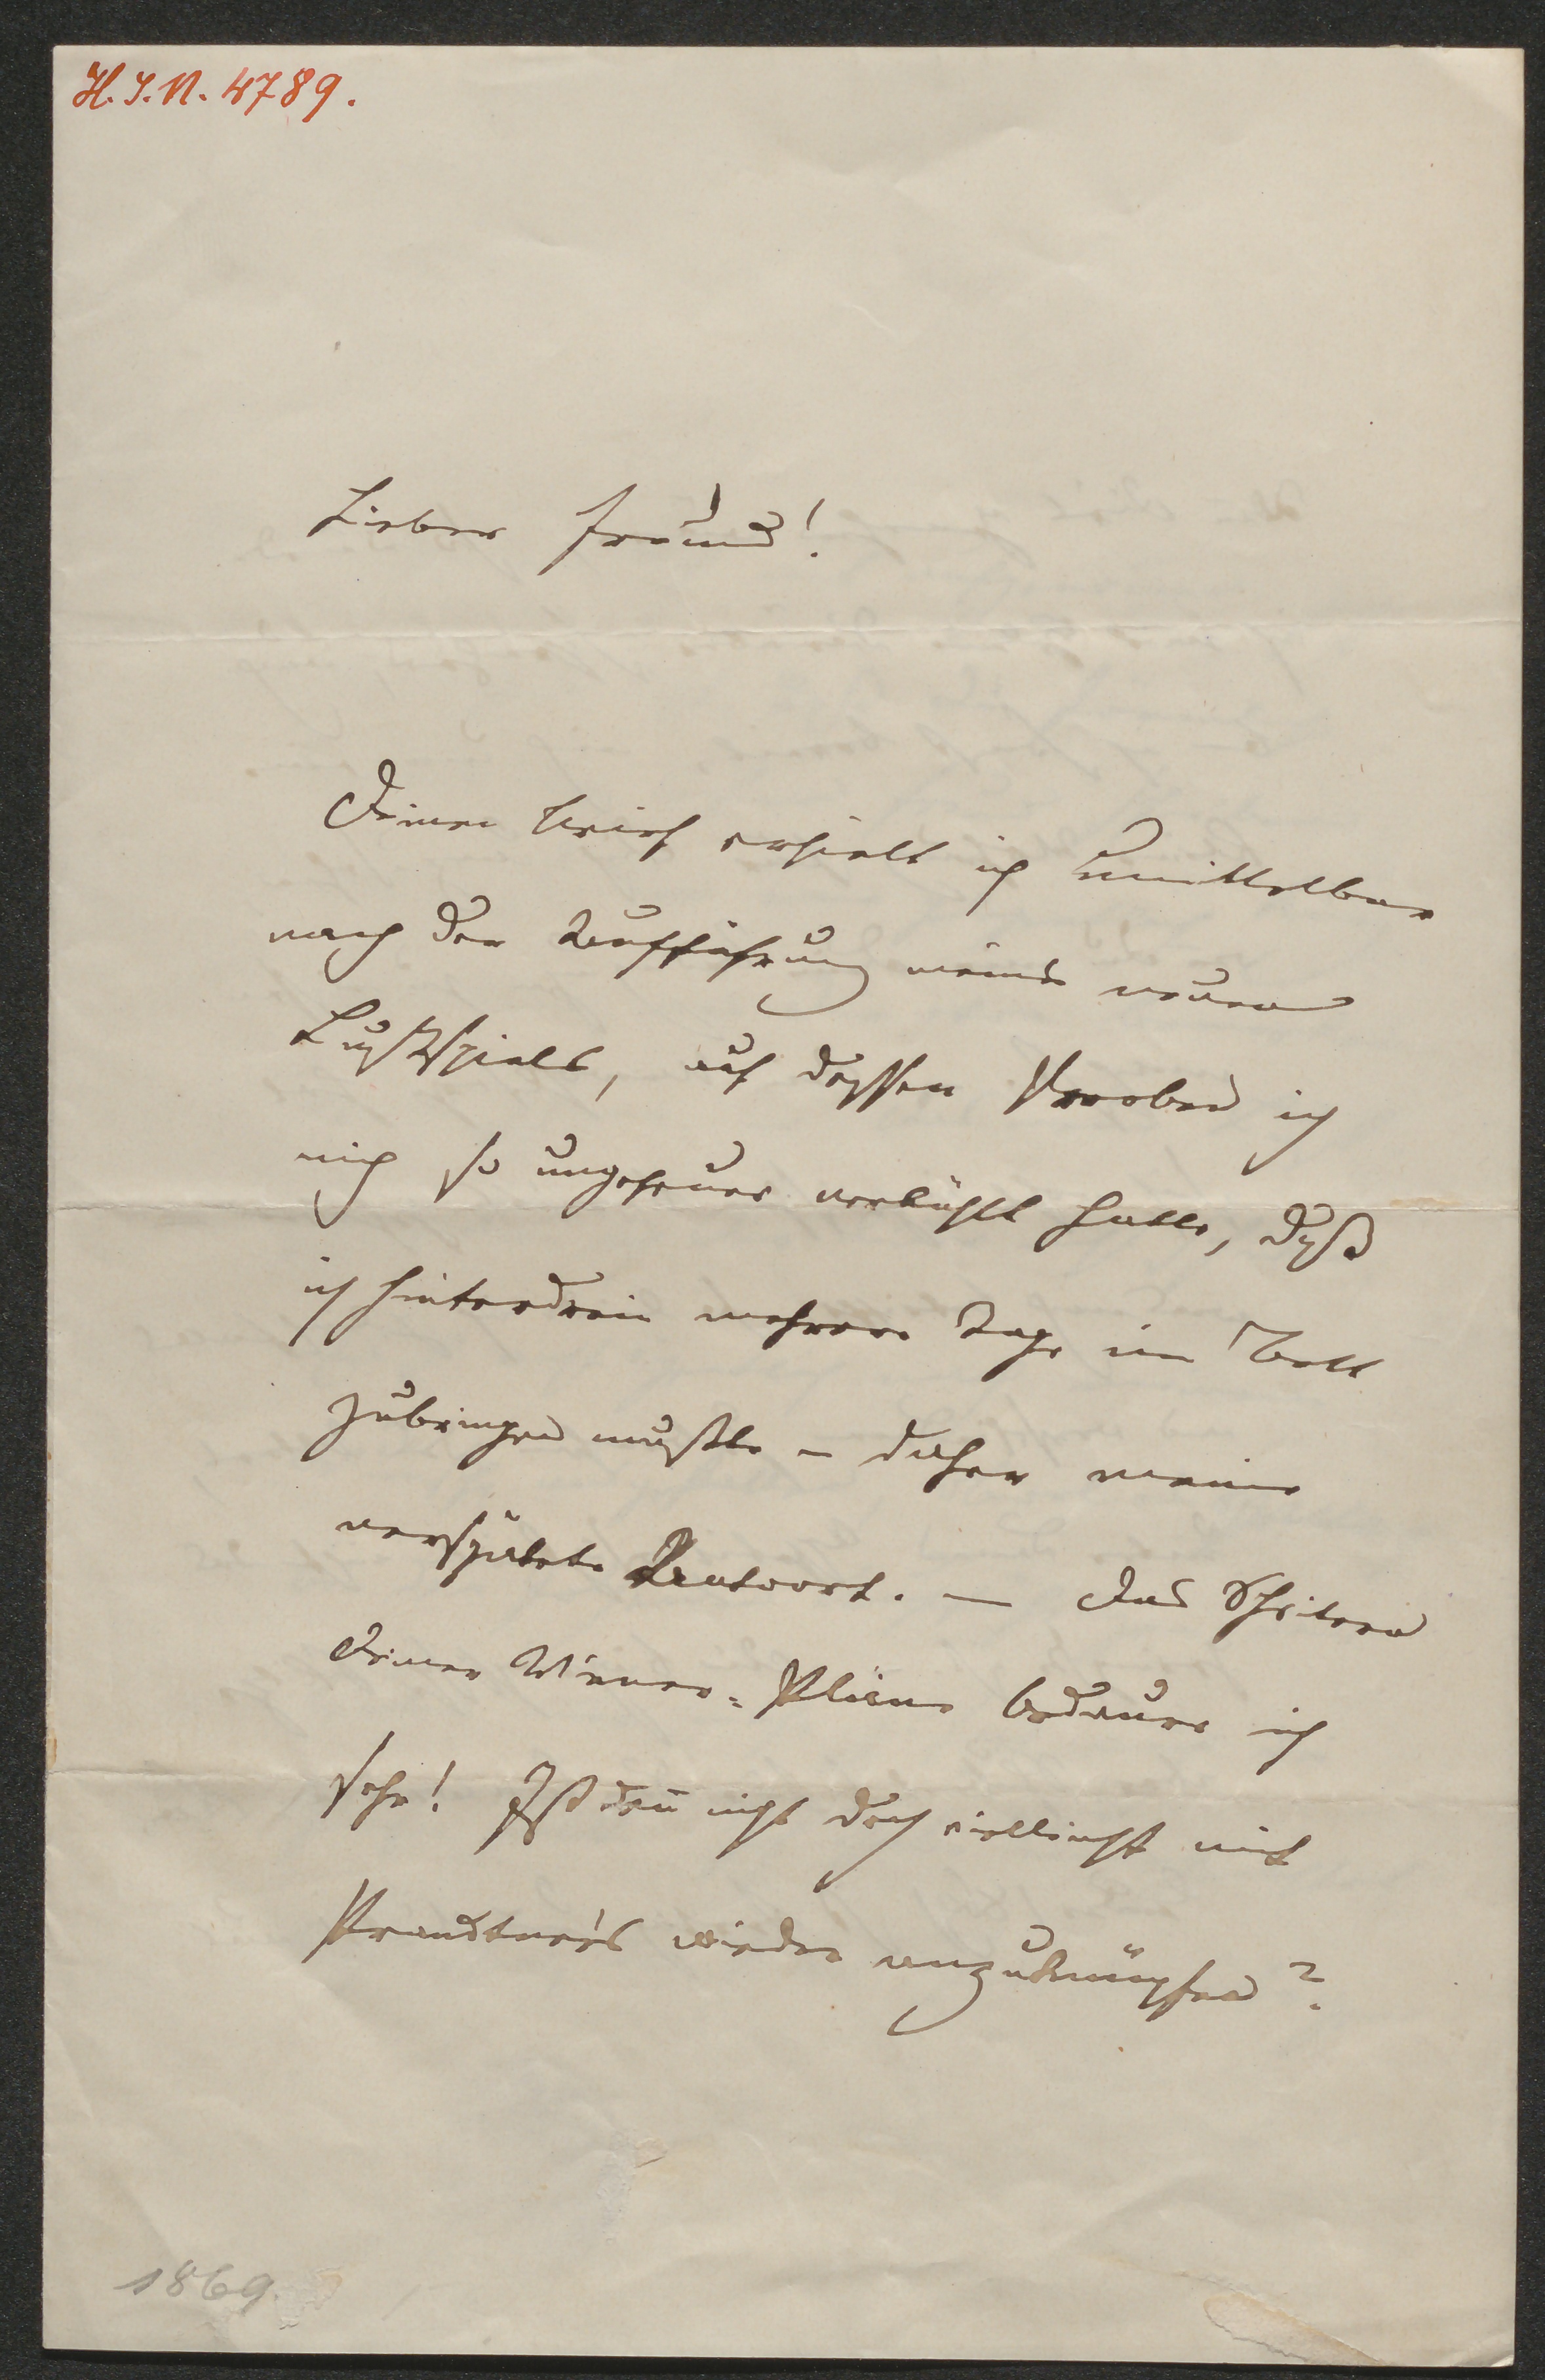 H. I. N. 4789.
Lieber Freund!
Deinen Brief erhielt ich unmittelbar
nach der Aufführung meines neuen
Lustspiels, auf dessen Proben ich
mich so ungeheuer verkühlt hatte, daß
ich hinterdrein mehrere Tage im Bett
zubringen mußte – daher meine
verspätete Antwort. — Das Scheitern
Deiner Wiener-Pläne bedaure ich
sehr! Ist den̄ nicht doch vielleicht mit
wieder anzuknüpfen?
1869.